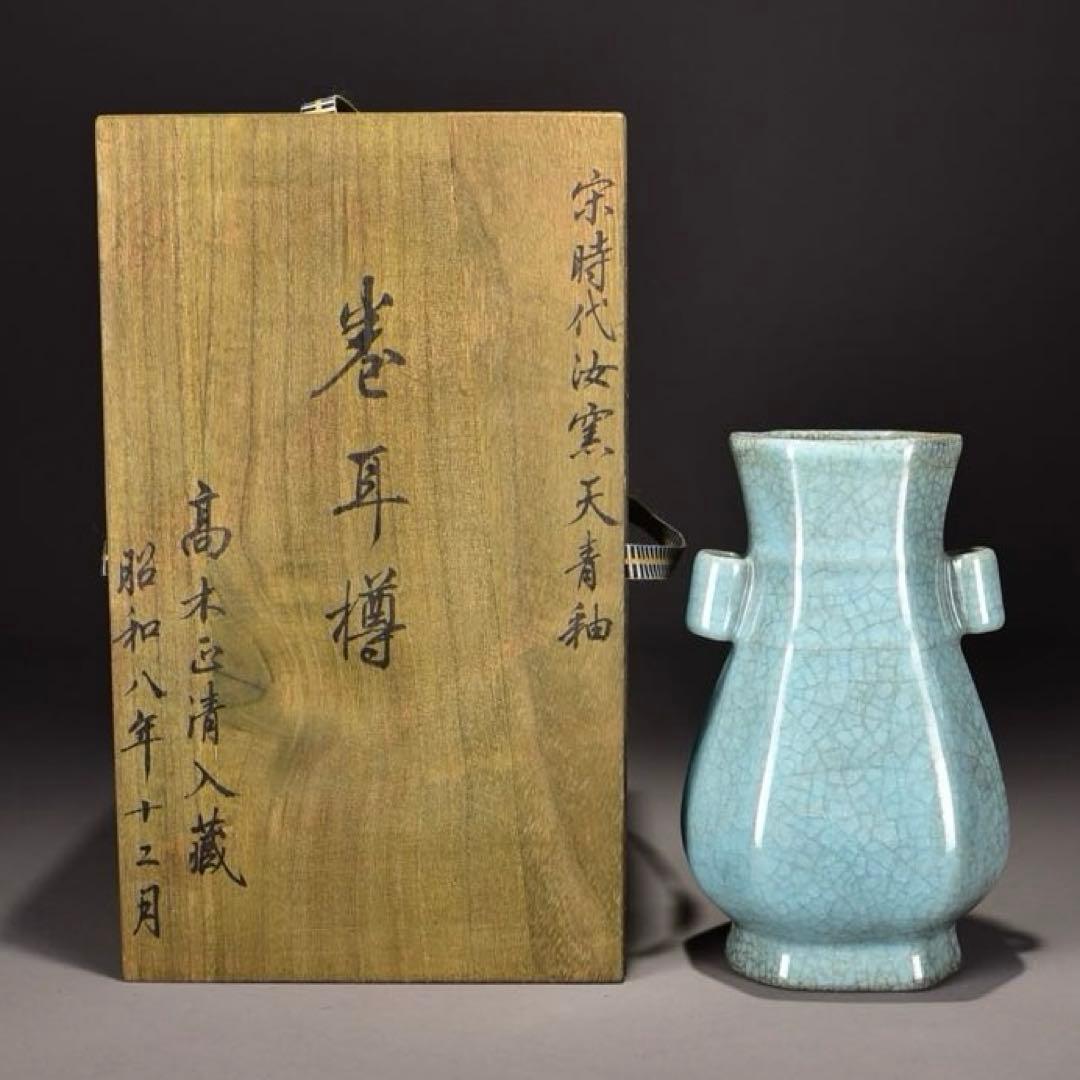 宋時代汝窯天青釉
卷耳樽
高木正清入藏
昭和八年十二月